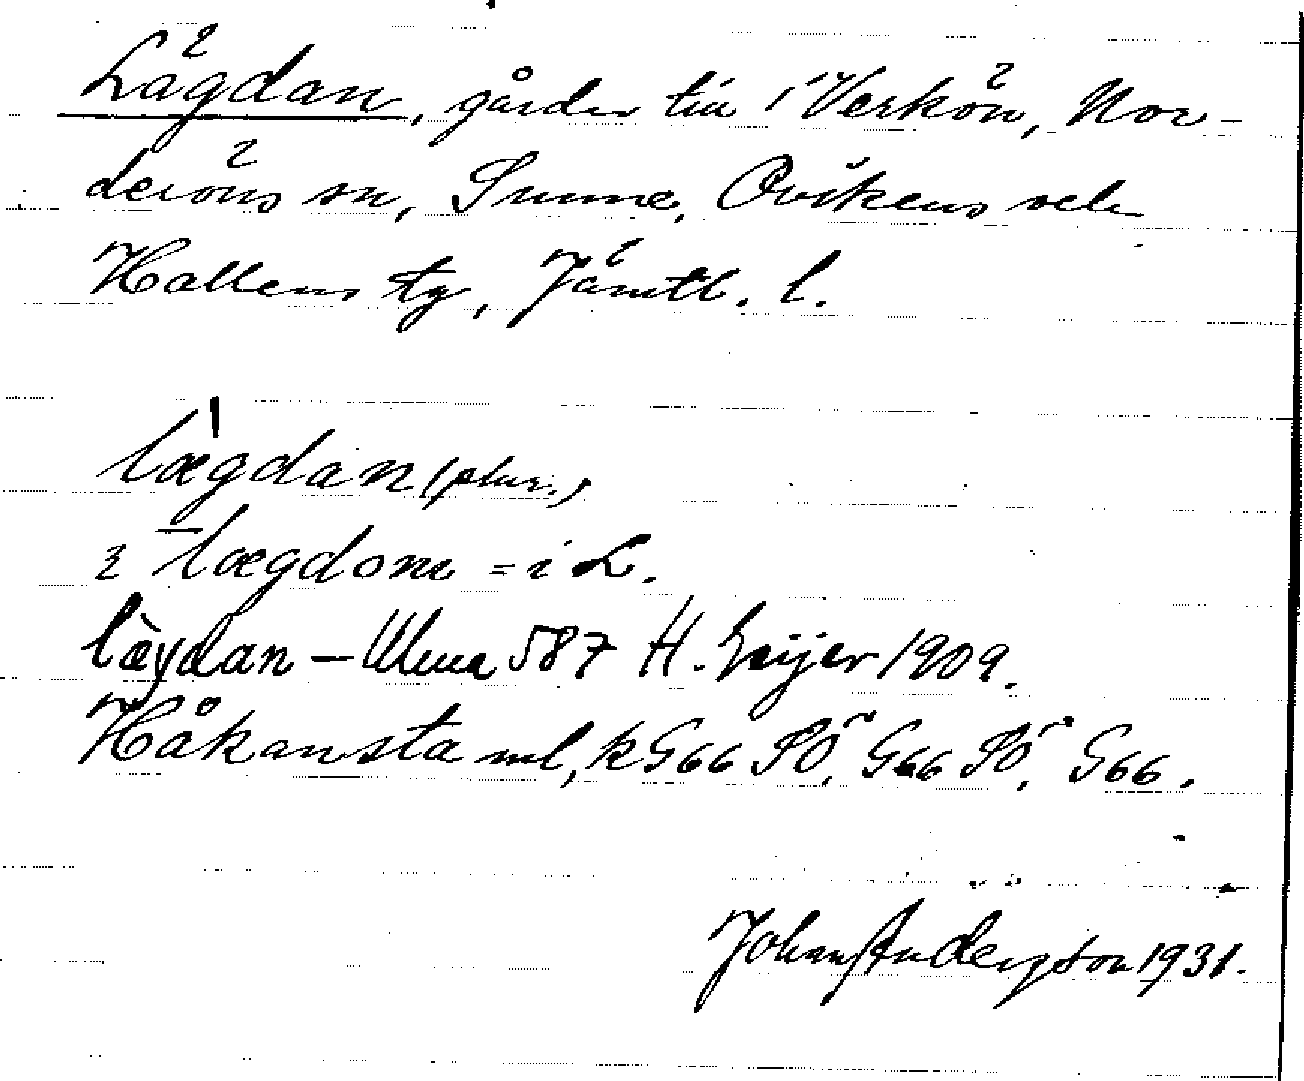 Lägdan, gårdar tiu i Verkön, Nor-
deröns sn, Sunne, Ovikens och
Hallens tg, Jämtl. l.
lægdan (plur.)
2 lægdom = i L.
læydan - Ulma 587 H. Geijer 1909.
Håkansta ml, k G66 SÖ, G66 SÖ, G66.
Johan Anderson 1931.